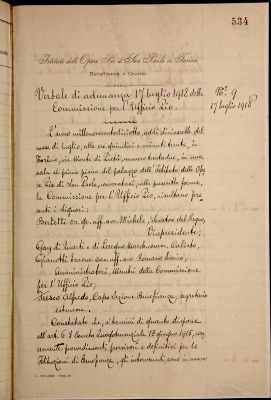 534
Istituto delle Opere Pie di San Paolo in Torino
Beneficenza e Credito
Verbale di adunanza 17 luglio 1918 della
Commissione per l'Ufficio Pio.
N.° 9
17 luglio 1918
L'anno millenovecentodiciotto, addì diciassette del
mese di luglio, alle ore quindici e minuti trenta, in
Torino, via Monte di Pietà, numero trentadue, in una
sala di primo piano del palazzo dell'Istituto delle Ope
re Pie di San Paolo, convocatasi, nelle prescritte forme,
la Commissione per l'Ufficio Pio, risultano pre
senti i signori:
Bertetti gr. uff. avv. Michele, Senatore del Regno,
Vicepresidente;
Gay di Quarti e di marchese Carlo,
barone cav. uff. avv. Enrico,
Amministratori, Membri della Commissione
per l'Ufficio Pio;
Fresco Alfredo, Capo Sezione Beneficenza, segretario
estensore.
Constatato che, a termini di quanto dispone
all'art. 6 il Decreto Luogotenenziale 13 giugno 1915, con
cernente provvedimenti provvisori e definitivi per le
Istituzioni di Beneficenza, gli intervenuti sono in numero